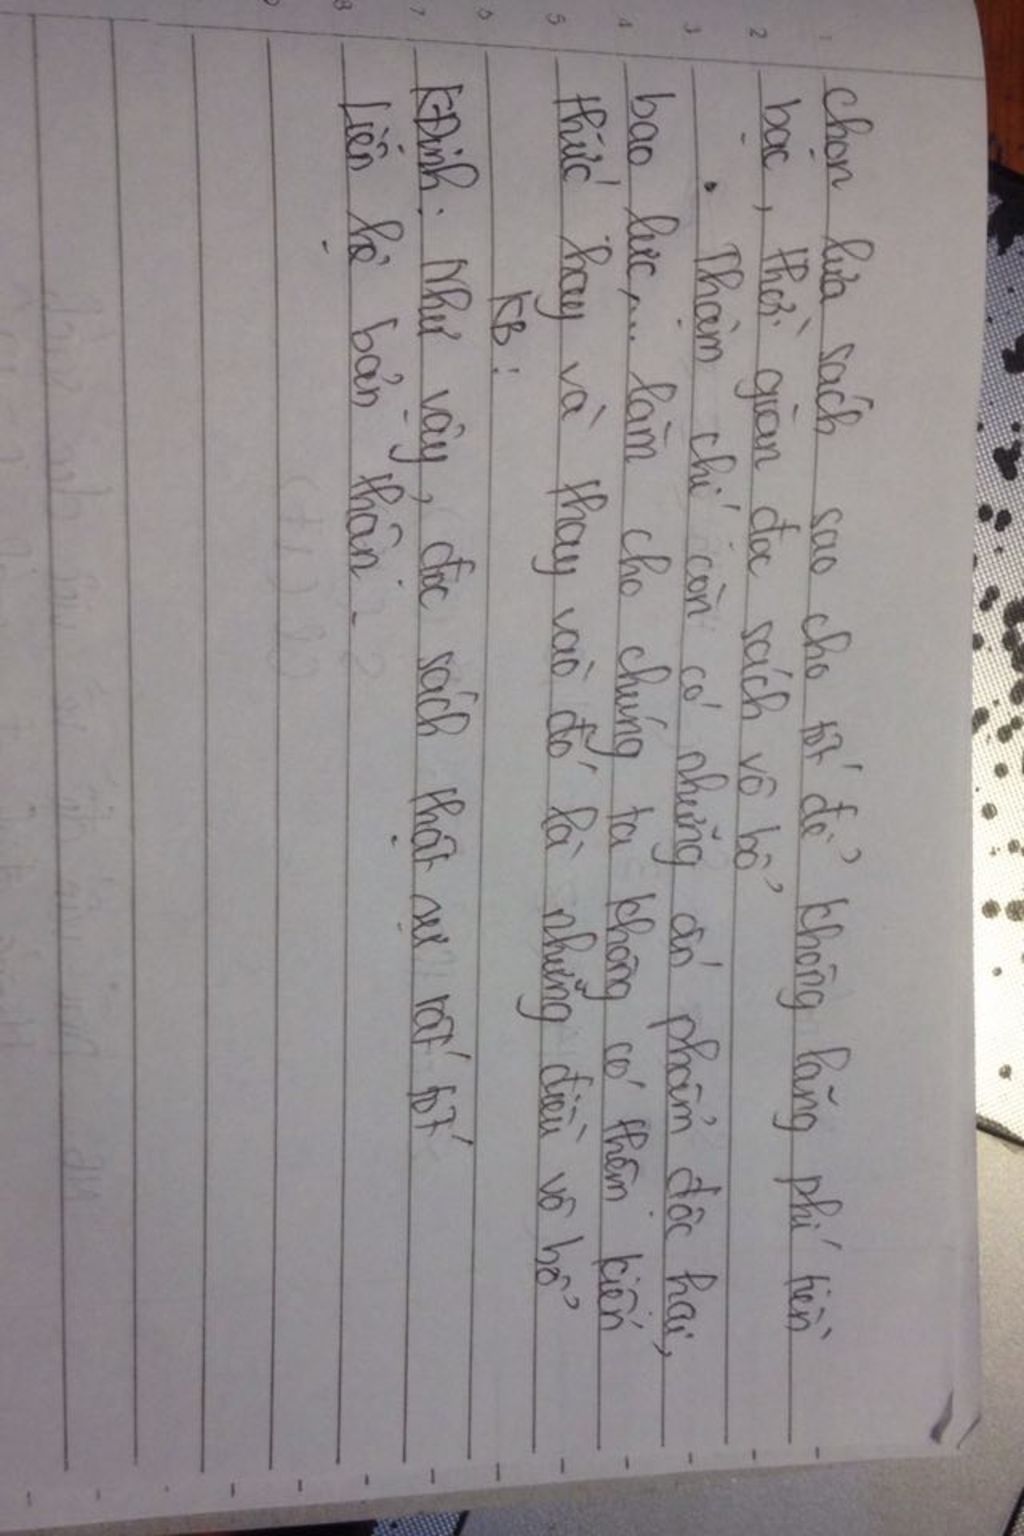 chọn lựa sách sao cho tốt để không lãng phí tiền
bạc, thời gian đọc sách vô bổ
. Thậm chí còn có những ấn phẩm độc hại,
bạo lực,... làm cho chúng ta không có thêm kiến
thức hay và thay vào đó là những điều vô bổ
KB:
KĐịnh: Như vậy, đọc sách thật sự rất tốt
Liên hệ bản thân.
1
2
3
4
5
6
7
8